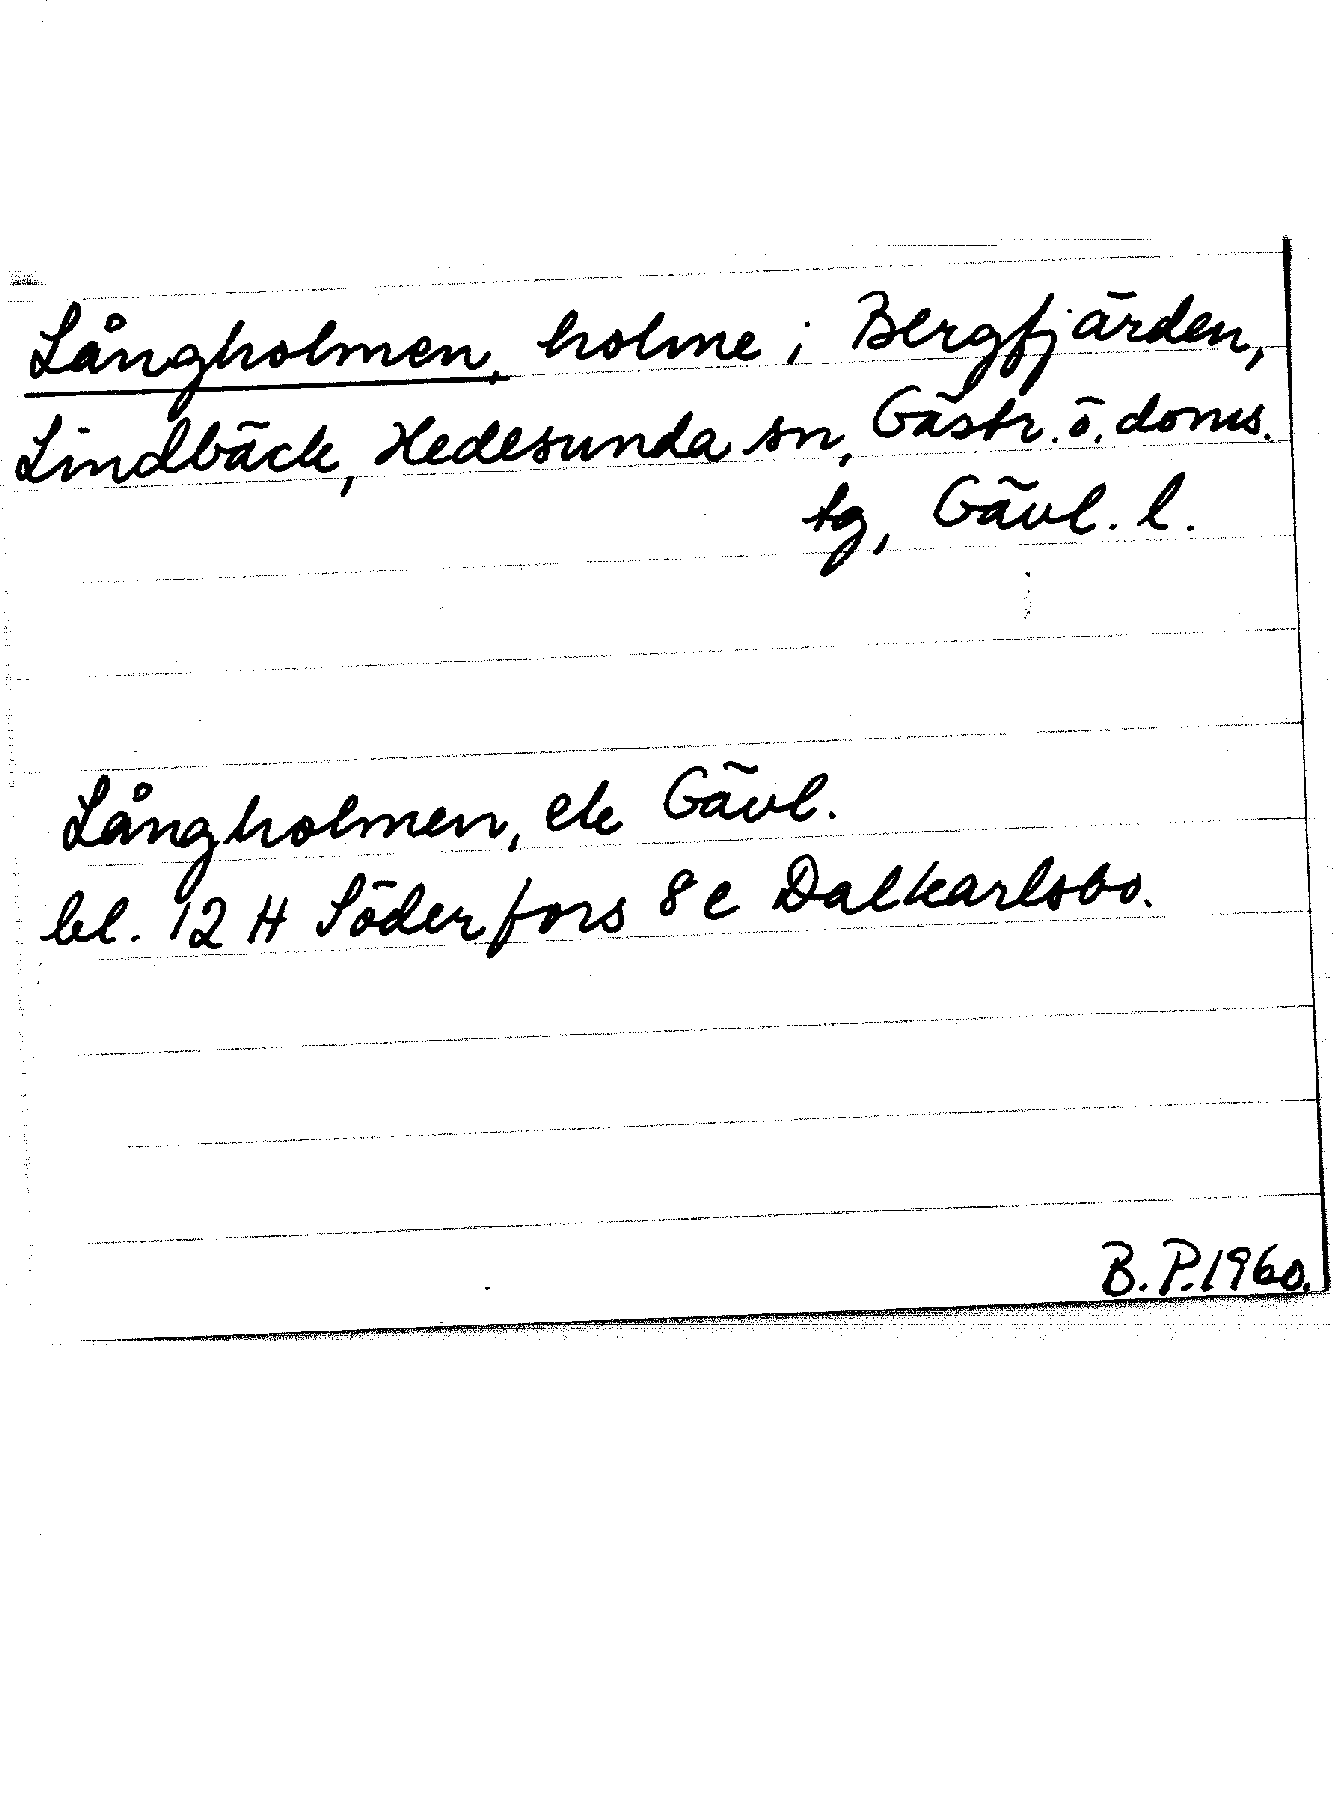 Långholmen, holme i Bergfjärden,
Lindbäck, Hedesunda sn, Gästr. ö. doms.
tg, Gävl. l.
Långholmen, ek Gävl.
bl. 12 H Söderfors 8 e Dalkarlsbo.
B.P.1960.